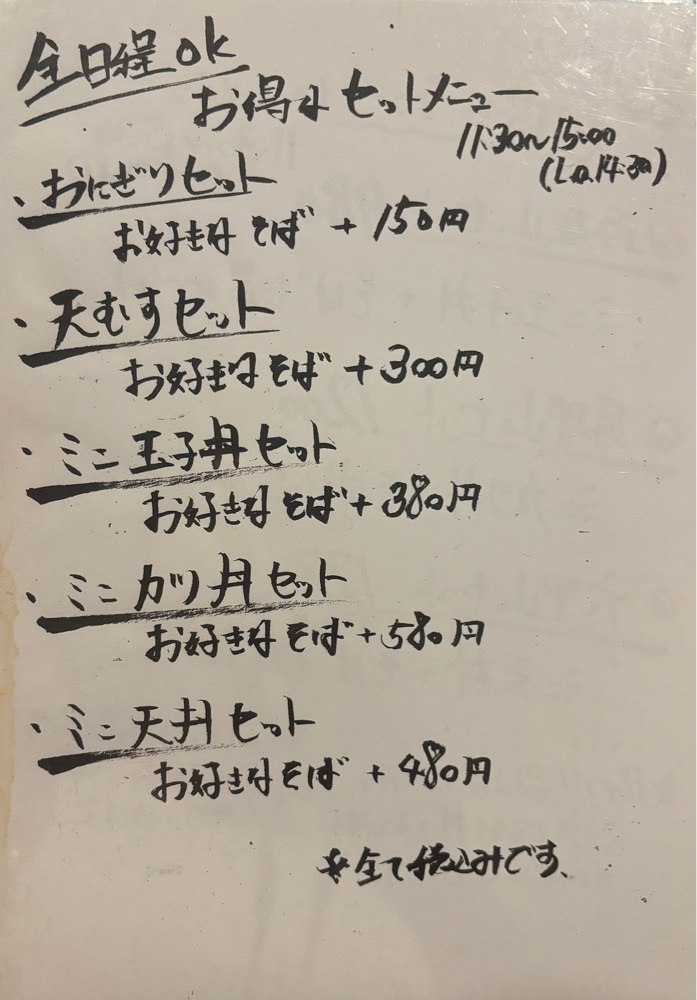 全日程ok
お得なセットメニュー
11:30~15:00
(L.o.14:30)
・おにぎりセット
お好きな そば + 150円
・天むすセット
お好きな そば + 300円
・ミニ 玉子丼 セット
お好きな そば + 380円
・ミニ カツ丼 セット
お好きな そば + 580円
・ミニ 天丼 セット
お好きな そば + 480円
※全て税込みです、